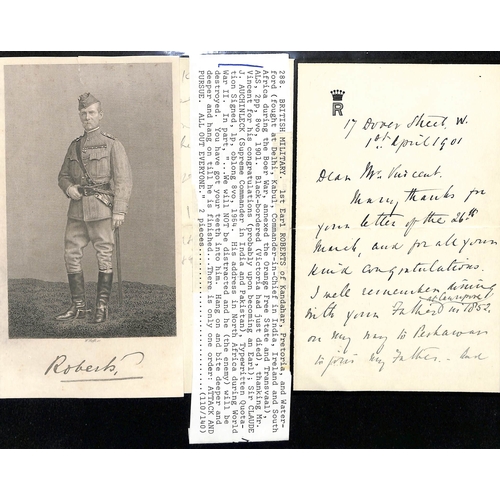 Roberts
288. BRITISH MILITARY. 1st Earl ROBERTS of Kandahar, Pretoria, and Water-
ford (fought at Delhi, Kabul, Commander-in-Chief in India, Ireland and South
Africa during the Boer War, annexed the Orange Free State and Transvaal),
ALS, 2pp, 8vo, 1901. Black-bordered (Victoria had just died), thanking Mr.
Vincent for his congratulations (probably upon becoming an Earl); Sir CLAUDE
J. AUCHINLECK (Supreme Commander in India and Pakistan), Typewritten Quota-
tion Signed, 1p, oblong 8vo, 1964. His address in North Africa during World
War II. In part, "...We will NOT be distracted and he (the enemy) will be
destroyed. You have got your teeth into him. Hang on and bite deeper and
deeper and hang on till he is finished...There is only one order: ATTACK AND
PURSUE. ALL OUT EVERYONE." 2 pieces..............(110/140)
R
17 Dover Street, W.
1st April 1901
Dear Mr. Vincent.
Many thanks for
your letter of the 26th
March, and for all your
kind congratulations.
I well remember dining
at Cawnpore
with your Father in 1852.
on my way to Peshawar
to join my Father - and